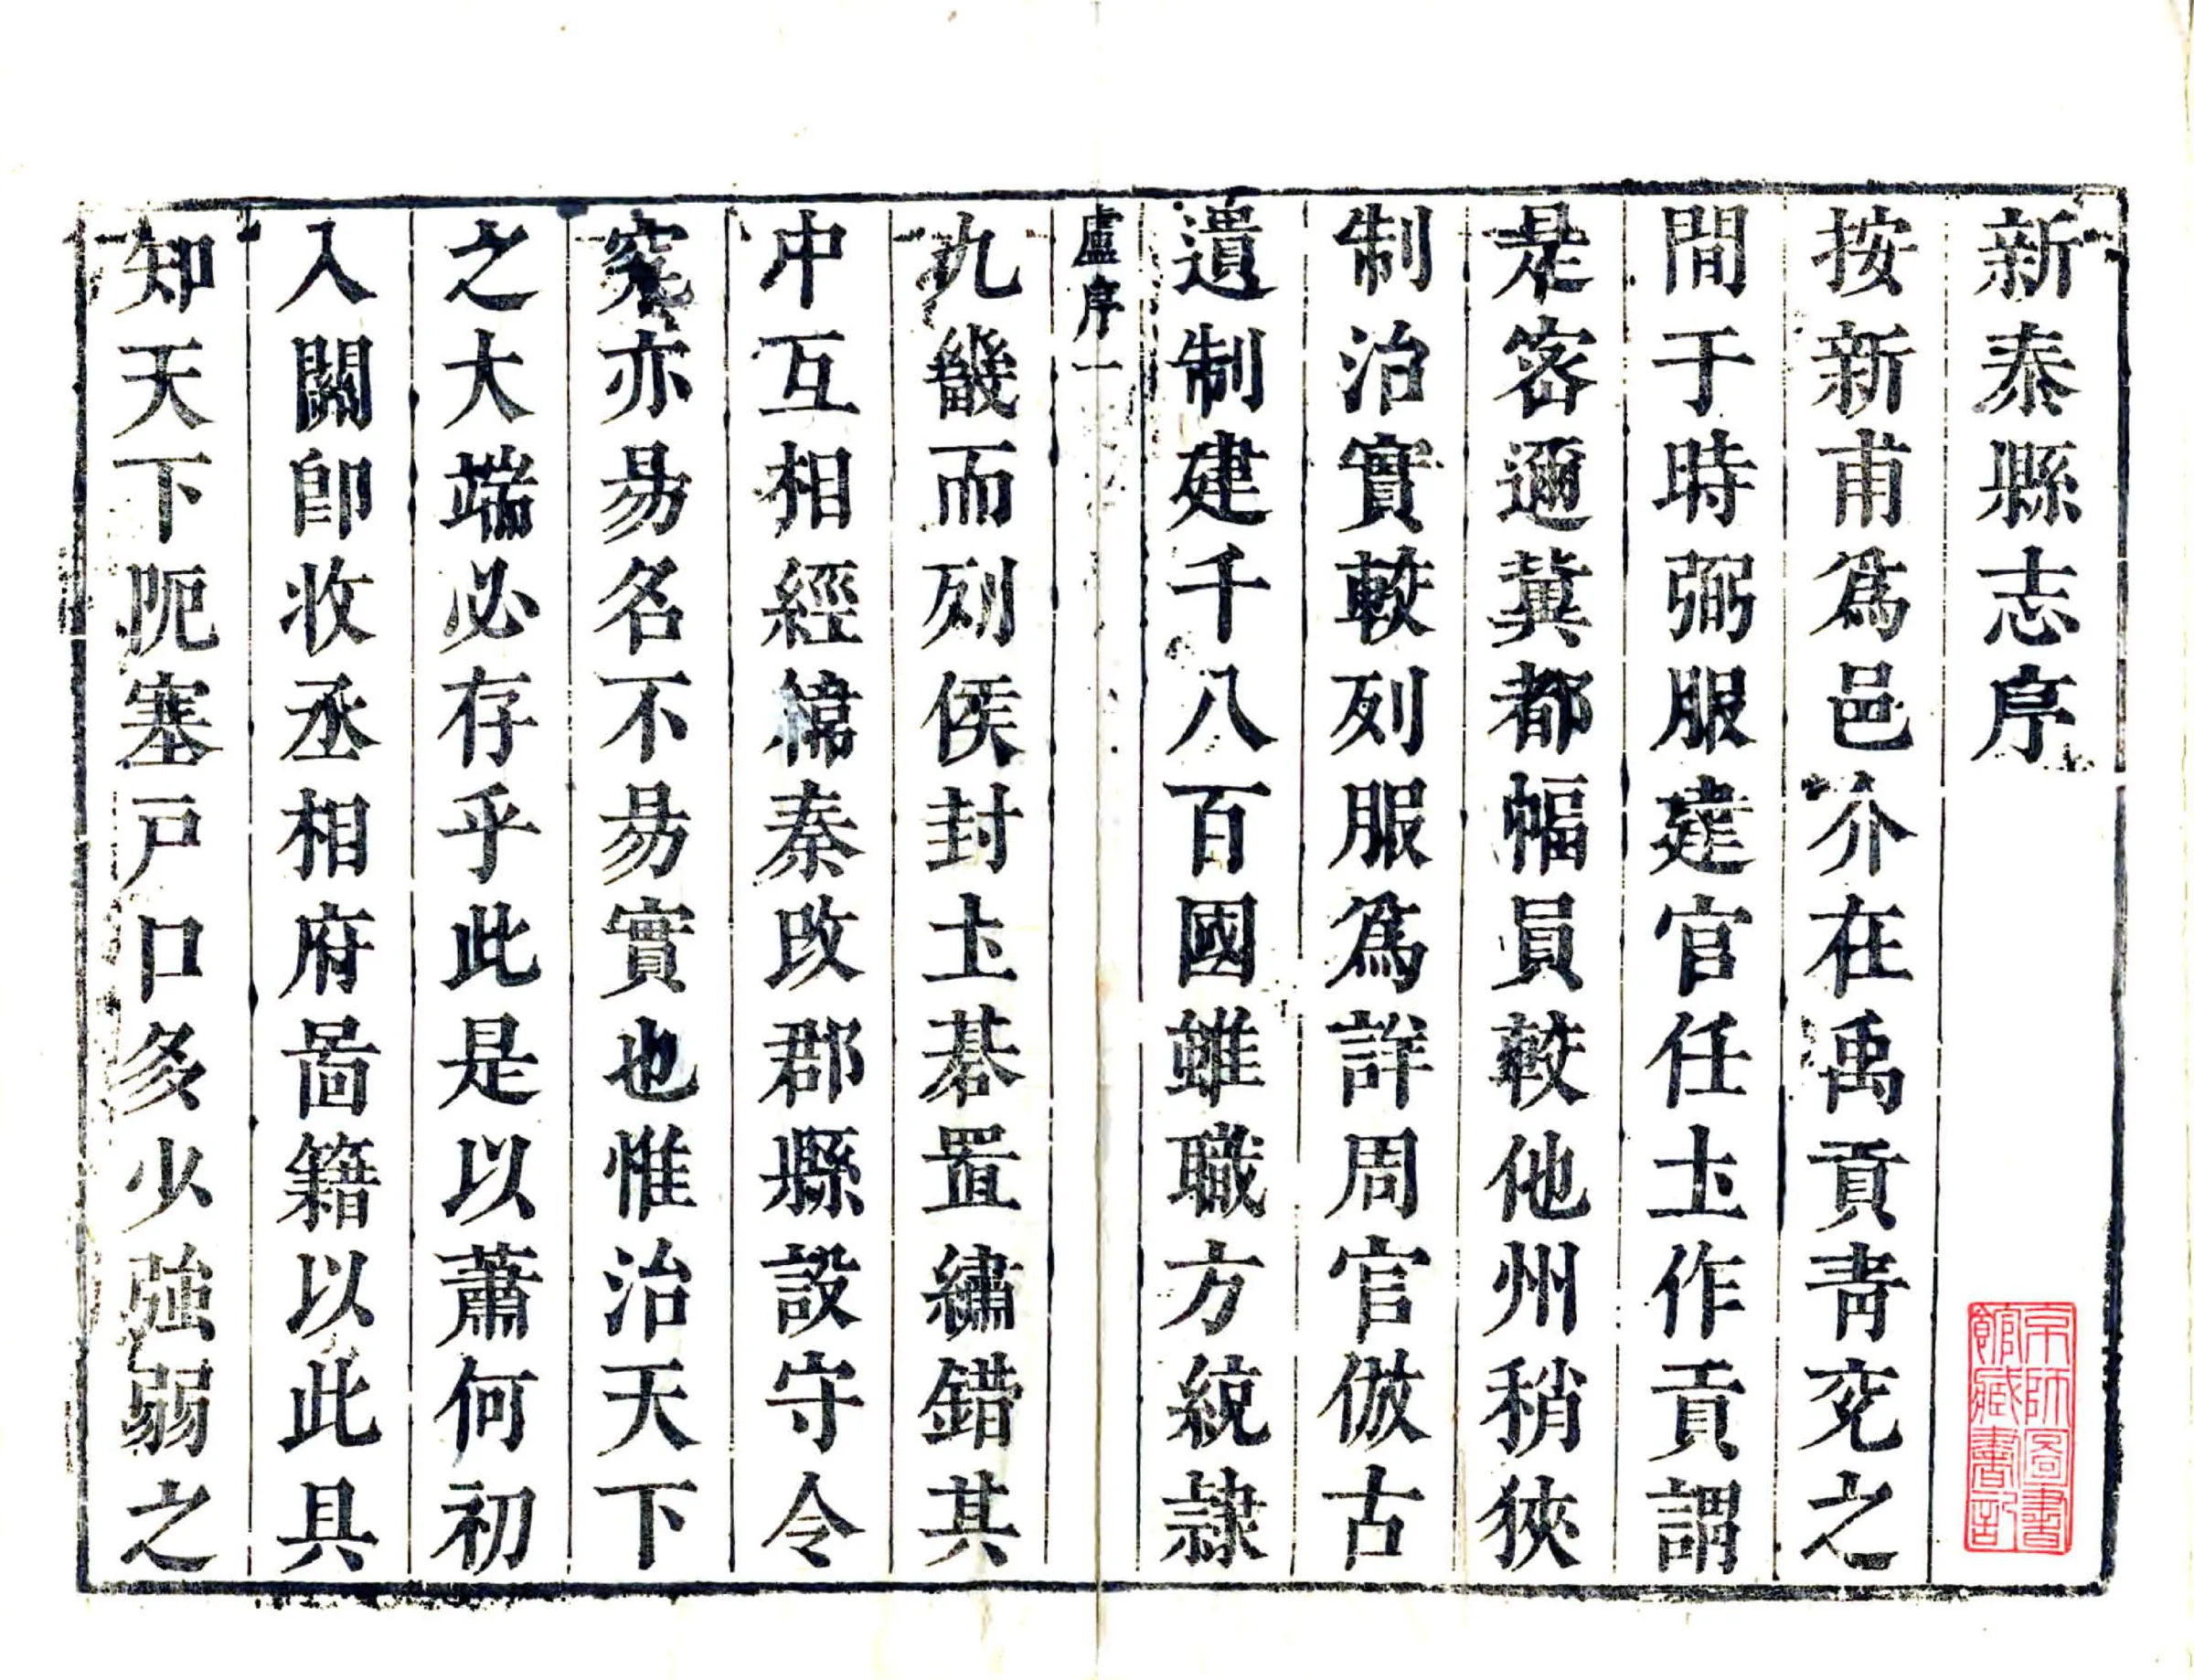 新泰縣志序
按新甫爲邑介在禹貢青兖之
間于時弼服建官任土作貢謂
是密邇冀都幅員較他州稍狹
制治實較列服爲詳周官倣古
遺制建千八百國雖職方統隷
盧序一
九畿而列侯封土碁置繡錯其
中互相經緯秦改郡縣設守令
究亦易名不易實也惟治天下
之大端必存乎此是以蕭何初
入關卽收丞相府啚籍以此具
知天下阨塞戸口多少強弱之
京師圖書
館藏書記